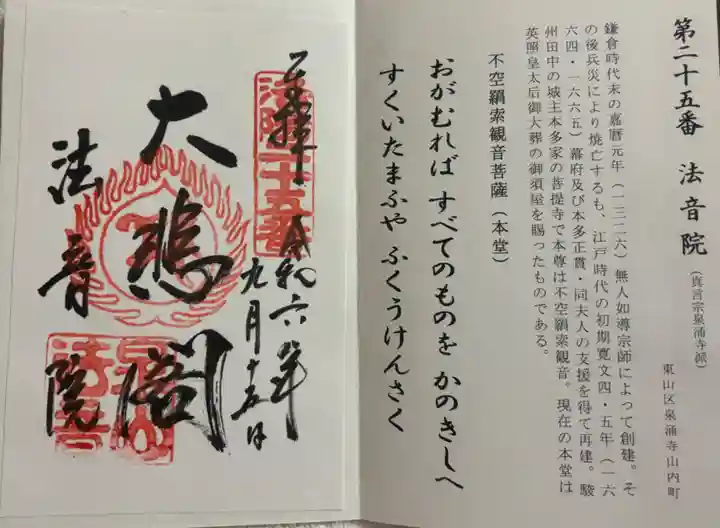 第二十五番 法音院
(真言宗泉涌寺派)
東山区泉涌寺山内町
鎌倉時代末の嘉暦元年(一三二六)無人如導宗師によって創建。そ
の後兵災により焼亡するも、江戸時代の初期寛文四・五年(一六
六四・一六六五)幕府及び本多正貫・同夫人の支援を得て再建。駿
州田中の城主本多家の菩提寺で本尊は不空羂索観音。現在の本堂は
英照皇太后御大葬の御須屋を賜ったものである。
不空羂索観音菩薩(本堂)
おがむれば すべてのものを かのきしへ
すくいたまふや ふくうけんさく
奉拝 令和六年
九月十五日
大悲閣
法音院